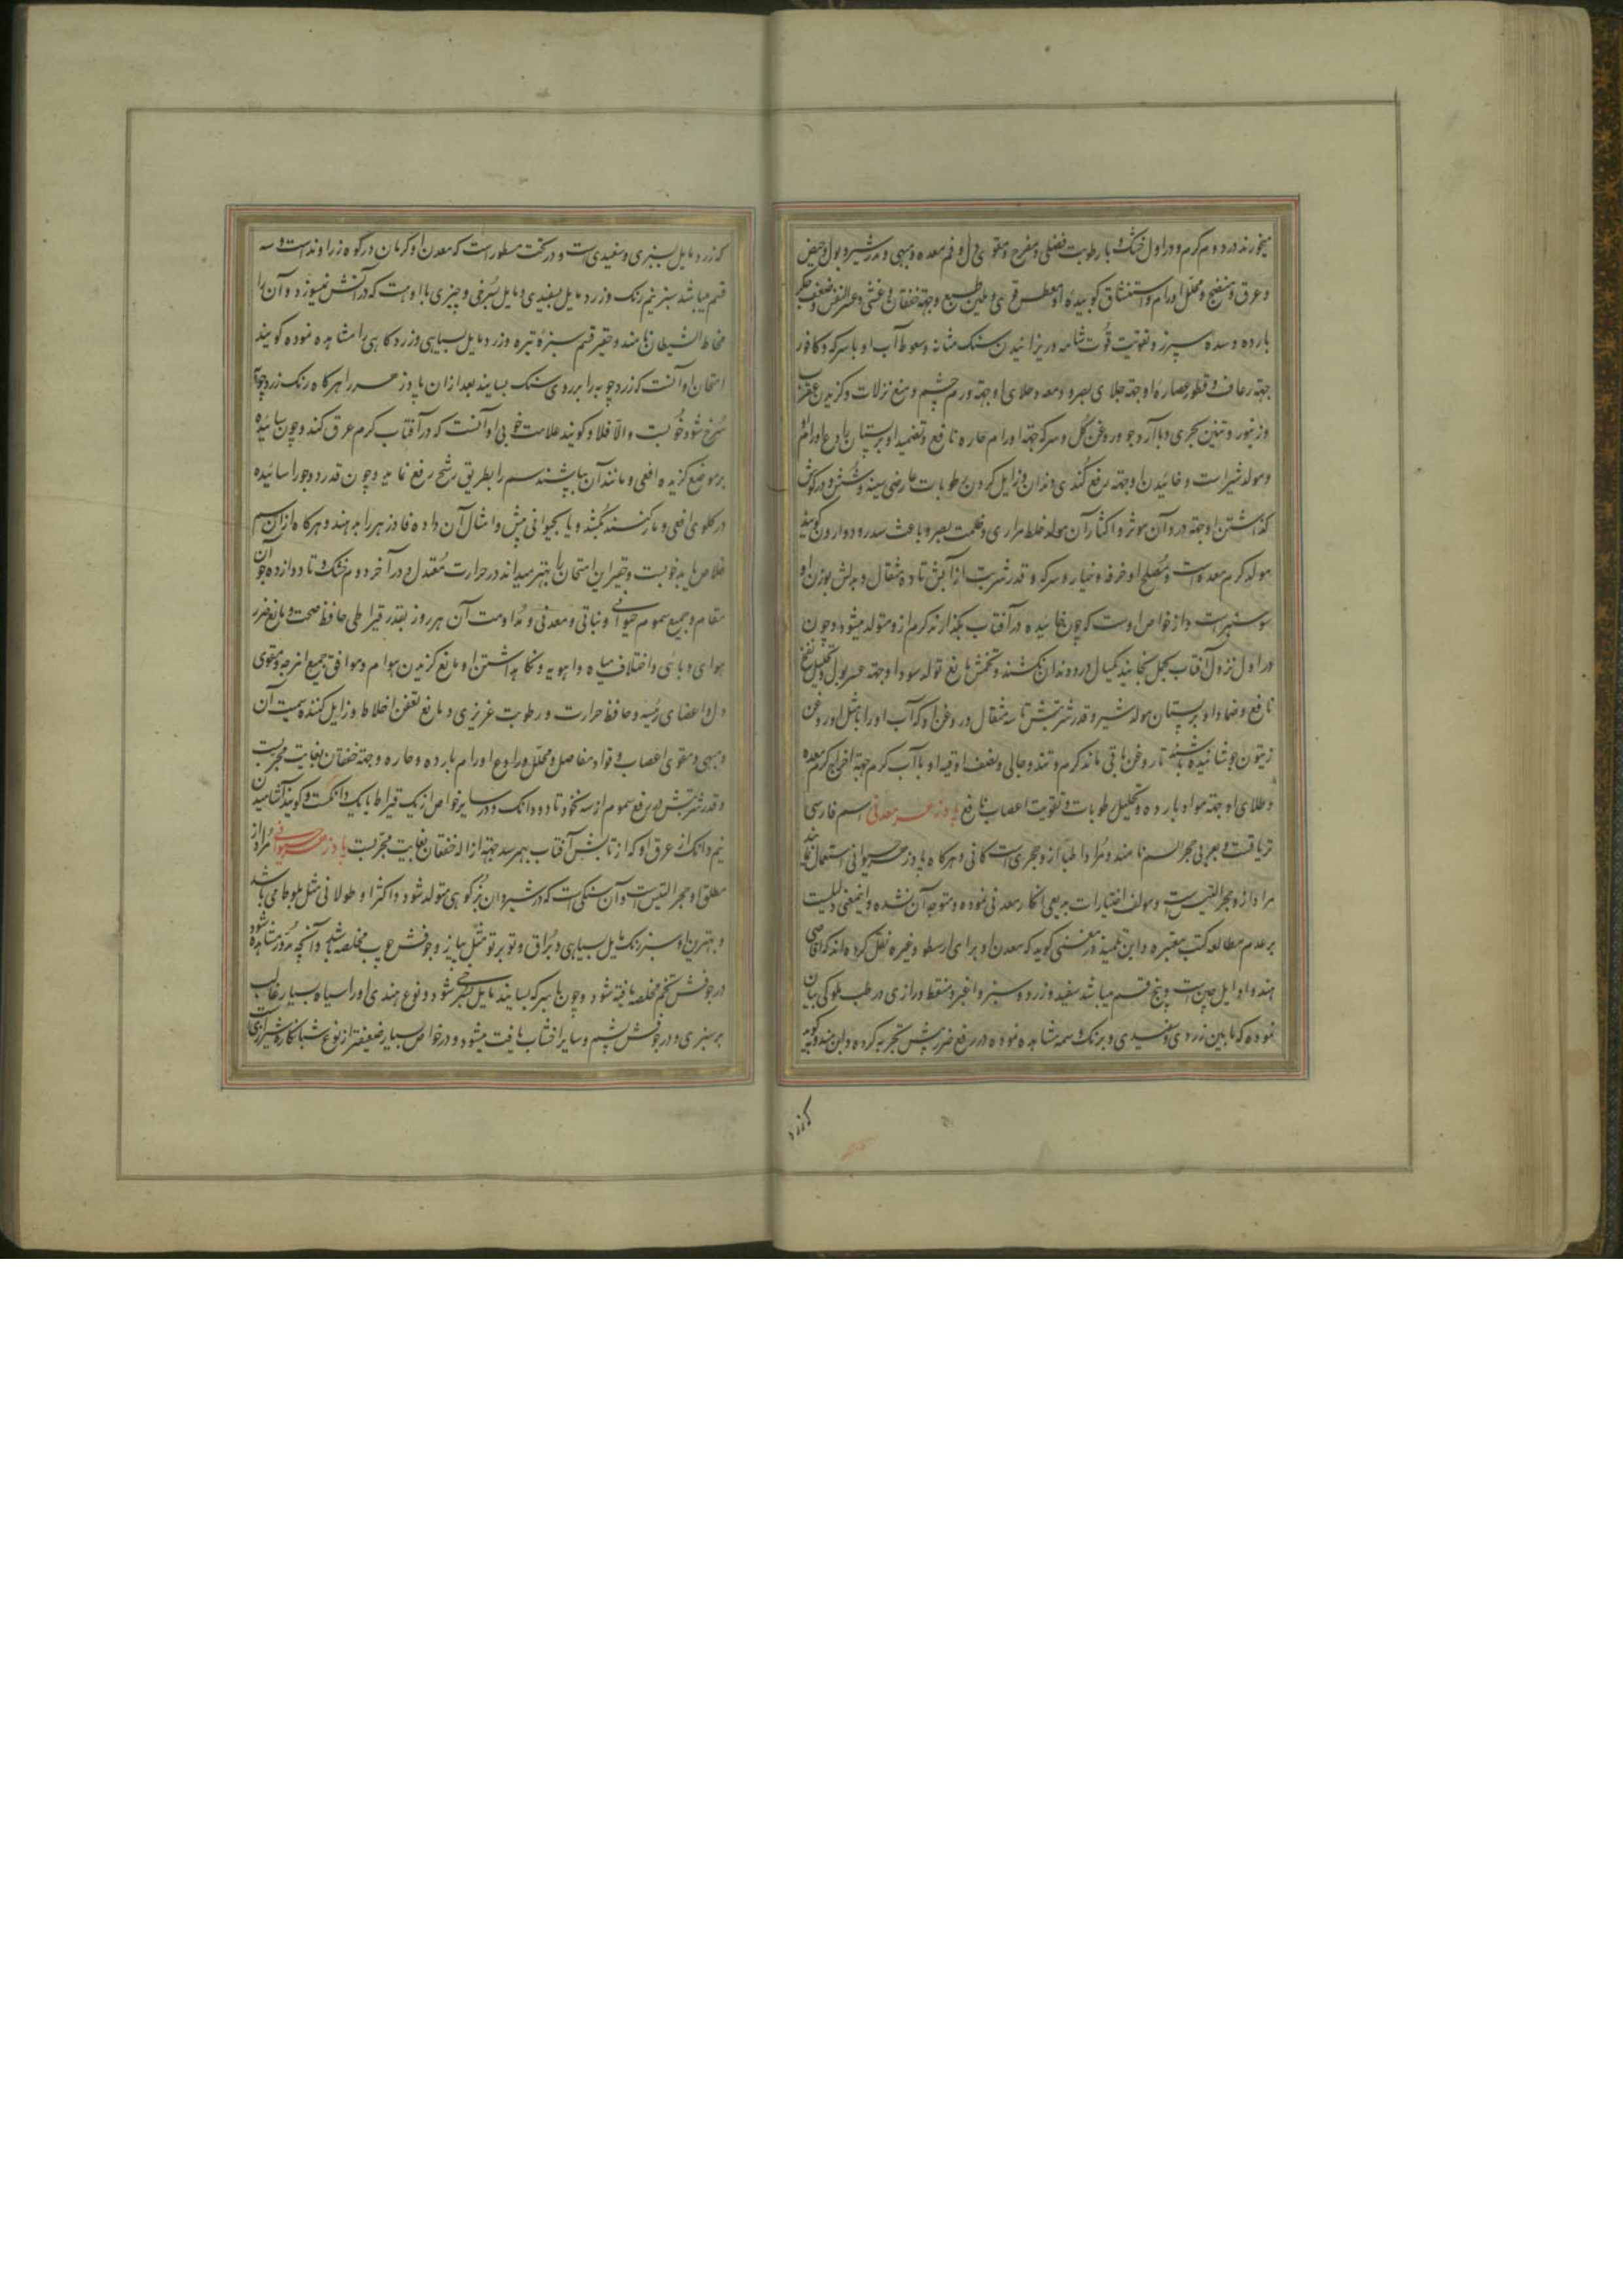 میخورند در دوم گرم و در اول خشک و با رطوبت فضلی و مفرح و مقوی دل و فم معده و مبهی و مدر شیر و بول و حیض
و عرق و منضج و محلل اورام و استنشاق کوبیدهٔ او معطس قوی و ملین طبع و جهة خفقان و غشی و عسر النفس و ضعف جکر
بارده و سده سپرز و تقویت قوت شامه و ریزانیدن سنک مثانه و سعوط آب او با سرکه و کافور
جهة رعاف و قطور عصارهٔ او جهة جلای بصر و دمعه و طلای او جهة ورم چشم و منع نزلات و کزیدن عقرب
و زنبور و تنین بحری و با آرد جو و روغن گل و سرکه جهة اورام حاره نافع و تضمید او بر پستان رادع اورام
و مولد شیر است و خائیدن او جهة رفع کندی دندان و زایل کردن رطوبات عارضی سینه و شش و در گوش
گذاشتن او جهة درد آن موثر و اکثار آن مولد خلط مراری و ظلمت بصر و باعث سدر و دوار و گویند
مولد کرم معده است و مصلح او خرفه و خیار و سرکه و قدر شربت از آبش تا ده مثقال و بدلش بوزن او
سوسنبر است و از خواص اوست که چون خائیده در آفتاب بکذارند کرم ازو متولد میشود و چون
در اول نزول آفتاب بحمل بخایند یکسال درد دندان نکشند و تخمش مانع تولد سودا و جهة عسر بول و تحلیل نفخ
نافع و ضماد او بر پستان مولد شیر و قدر شربتش تا سه مثقال و روغن او که آب او را با مثل او روغن
زیتون جوشانیده باشند تا روغن باقی ماند کرم و تند و جالی و نصف اوقیه او با آب کرم جهة اخراج کرم معده
و طلای او جهة مواد بارده و تحلیل رطوبات و تقویت اعصاب نافع پادزهر معدنی اسم فارسی
تریاقست و بعربی حجر السم نامند و مراد اطبا ازو حجریست کانی و هرگاه پادزهر حیوانی استعمال نمایند
مراد ازو حجر التیس است و مولف اختیارات بدیعی انکار معدنی نموده و متوجه آن نشده و اینمعنی دلیلیست
بر عدم مطالعه کتب معتبره و ابن تلمیذ در مغنی کوید که معدن او برای ارسطو و غیره نقل کرده‌اند که اقاصی
هند و اوایل چین است و پنج قسم میباشد سفید و زرد و سبز و اغبر و منقط و رازی در طب ملوکی بیان
نموده که مابین زردی و سفیدی و برنک وسمه مشاهده نموده در رفع ضرر بیش تجربه کرده و ابن مندویه گوید
که زرد
که زرد مایل بسبزی و سفیدیست و در نخب مسطور است که معدن او کرمان در کوه زراوند است و سه
قسم میباشد سبز نیم رنک و زرد مایل بسفیدی و مایل بسرخی و چیزی با اوست که در آتش نمیسوزد و آن را
مخاط الشیطان نامند و حقیر قسم سبز تیره و زرد مایل بسیاهی و زرد کاهی را مشاهده نموده گویند
امتحان او آنست که زرد چوبه را بر روی سنک بسایند بعد از ان پادزهر را هرکاه رنک زرد چوبه
سرخ شود خوبست و الا فلا و کویند علامت خوبی او آنست که در آفتاب کرم عرق کند و چون سائیده
بر موضع کزیده افعی و مانند آن بپاشند سم را بطریق رشح رفع نماید و چون قدر دو جو را سائیده
در کلوی افعی و مار کنند بکشد و یا بحیوانی بیش و امثال آن داده فادزهر را بدهند و هرکاه از ان سم
خلاص یابد خوبست و حقیر این امتحان را بهتر میداند در حرارت معتدل و در آخر دوم خشک و تا دوازده جو آن
مقام و جمیع سموم حیوانی و نباتی و معدنی و مداومت آن هر روز بقدر قیراطی حافظ صحت و مانع ضرر
هوای وبائی و اختلاف میاه و اهویه و نکاهداشتن او مانع کزیدن هوام و موافق جمیع امزجه و مقوی
دل و اعضای رئیسه و حافظ حرارت و رطوبت غریزی و مانع تعفن اخلاط و زایل کننده سمیت آن
و مبهی و مقوی اعصاب و قواد مفاصل و محلل و رادع اورام بارده و حاره و جهة خفقان بغایت مجربست
و قدر شربتش در رفع سموم از سه نخود تا دو دانک و در سایر خواص از یک قیراط تا یک دانکست و گویند آشامیدن
نیم دانک از عرق او که از تابش آفتاب بهم رسد جهة ازاله خفقان بغایت مجربست پادزهر حیوانی مراد از
مطلق او حجر التیس است و آن سنکی است که در شیردان بز کوهی متولد شود و اکثر او طولانی مثل بلوط می باشد
و بهترین او سبز رنک مایل بسیاهی و براق و تو بر تو مثل پیاز و جوفش چوب مخلصه باشد و آنچه مدور مشاهده شود
در جوفش تخم مخلصه یافته شود و چون با سرکه بسایند مایل بسرخی شود و نوع هندی او را سیاه بسیار غالب
بر سبزی و در جوفش پشم و سایر اخشاب یافت میشود و در خواص بسیار ضعیفتر از نوع شبانکاره شیرازی است